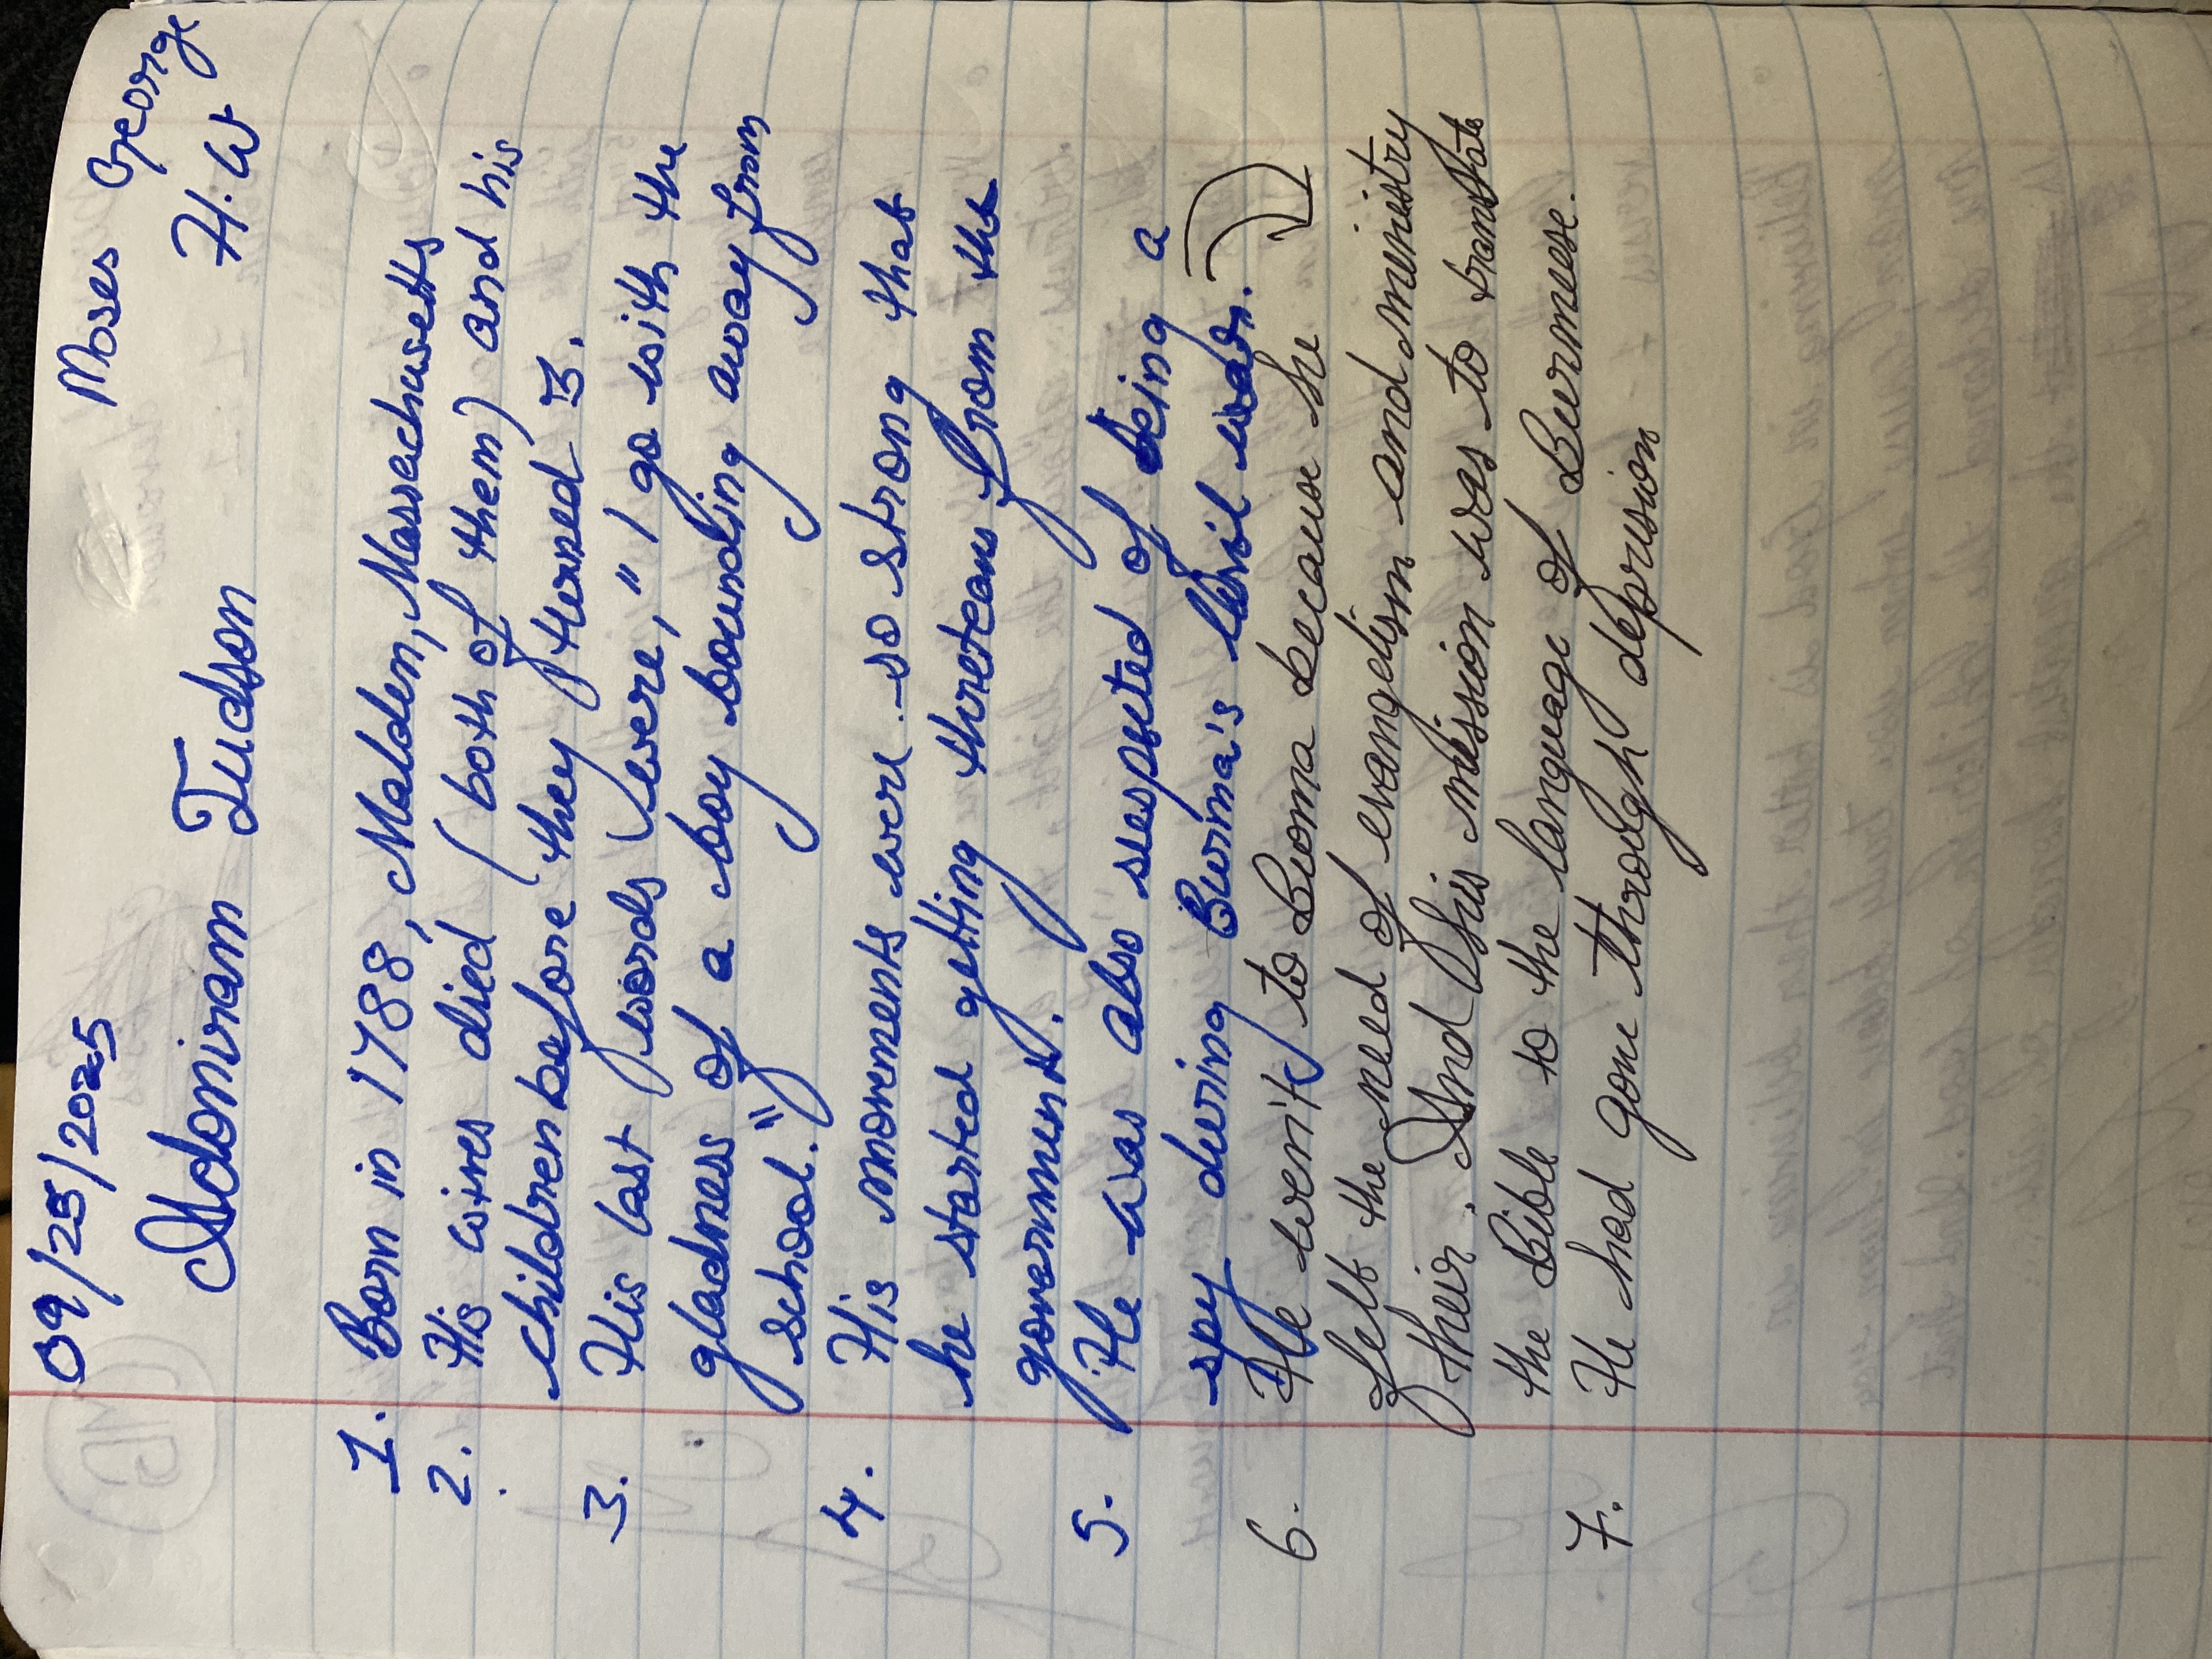 09/25/2025 Moses George
Adoniram Judson H.W
1. Born in 1788, Malden, Massachusetts
2. His wives died (both of them) and his
children before they turned 3.
3. His last words were, "I go with the
gladness of a boy bounding away from
school."
4. His movements were so strong that
he started getting threteans from the
government.
5. He was also sespected of being a
spy during Burma's civil wads.
6. He went to Burma because he
felt the need of evangelism and ministry
their. And his mission was to translate
the Bible to the language of Burmese.
7. He had gone through deprision